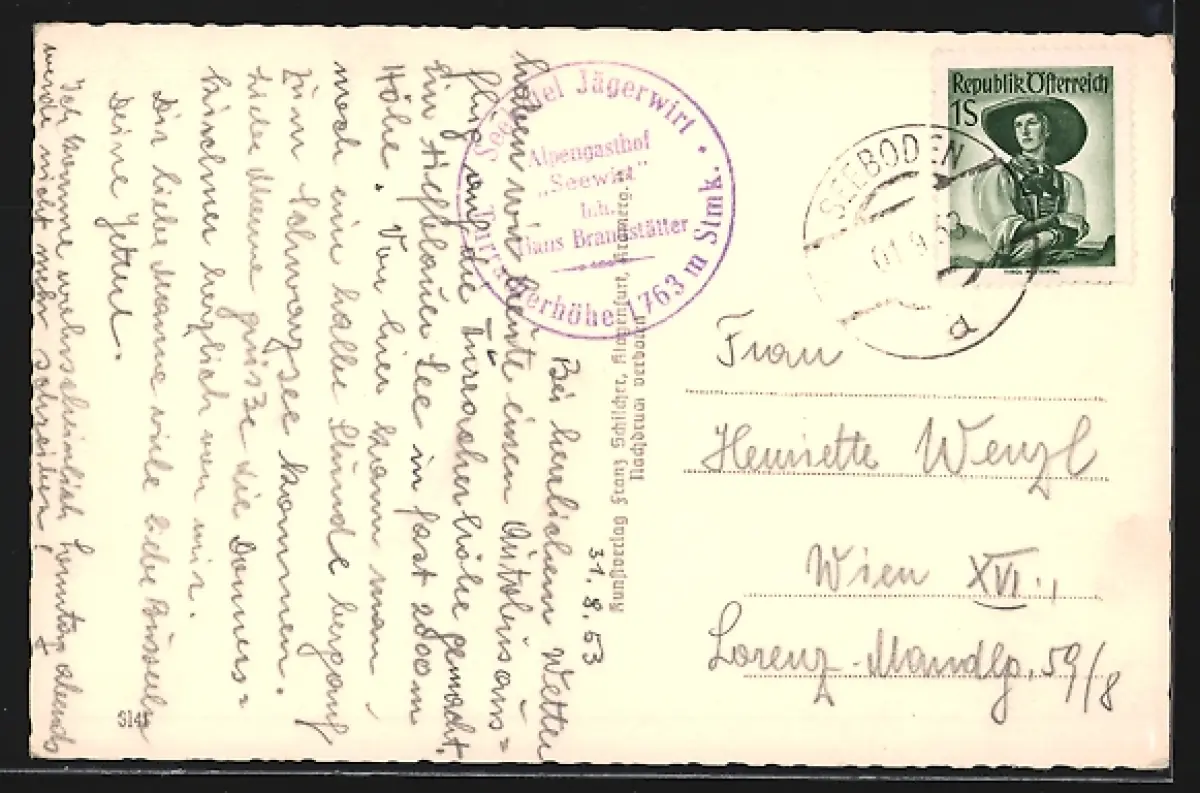 31.8.53
Bei herrlichem Wetter
haben wir heute einen Autobusaus=
flug auf die Turracherhöhe gemacht.
Ein tiefblauer See in fast 2000 m
Höhe. Von hier kann man
noch eine halbe Stunde bergauf
zum Schwarzsee kommen.
Liebe Mema grüße die Donners=
kirchner herzlich von mir.
Dir liebe Mama viele liebe Busserln
Deine Jetterl.
Ich komme wahrscheinlich Sonntag abends
werde nicht mehr schreiben!
S141
Seehotel Jägerwirt
Alpengasthof
„Seewirt"
Inh.
Hans Brandstätter
Turracherhöhe 1763 m Stmk.
Kunstverlag Franz Schilcher, Klagenfurt, Kramerg.
Nachdruck verboten
Republik Österreich
1S
SEEBODEN
01.9.53
a
Frau
Henriette Wenzl
Wien XVI.,
Lorenz-Mandlg. 59/8